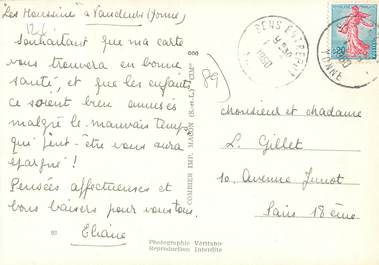 "Les Houssins" à Vaudeurs (Yonne)
Souhaitant que ma carte
vous trouvera en bonne
santé, et que les enfants
se soient bien amusés
malgré le mauvais temps
qui peut-être vous aura
épargné !
Pensées affectueuses et
bons baisers pour vous tous.
Eliane
89
COMBIER IMP. MACON (S.-et-L.) "CIM"
Photographie Véritable
Reproduction Interdite
SENS
YONNE
0,20
Monsieur et Madame
L. Gillet
10. Avenue Junot
Paris 18ème